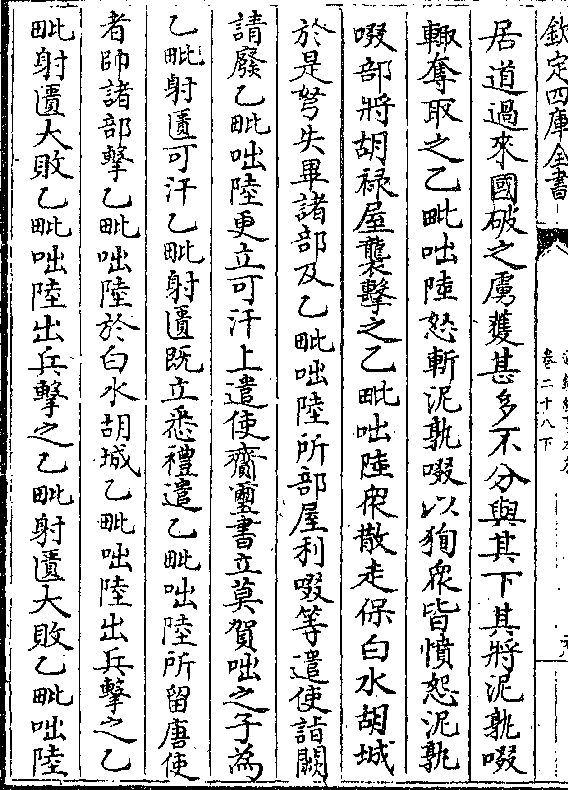 欽定四庫全書
卷二十八下
居道過來國破之虜獲甚多不分與其下其將泥孰啜
輙奪取之乙毗咄陸怒斬泥孰啜以狥衆皆憤怒泥孰
啜部將胡禄屋襲擊之乙毗咄陸衆散走保白水胡城
於是弩失畢諸部及乙毗咄陸所部屋利啜等遣使詣闕
請廢乙毗咄陸更立可汗上遣使齎璽書立莫賀咄之子為
乙毗射匱可汗乙毗射匱既立悉禮遣乙毗咄陸所留唐使
者帥諸部擊乙毗咄陸於白水胡城乙毗咄陸出兵擊之乙
毗射匱大敗乙毗咄陸出兵擊之乙毗射匱大敗乙毗咄陸